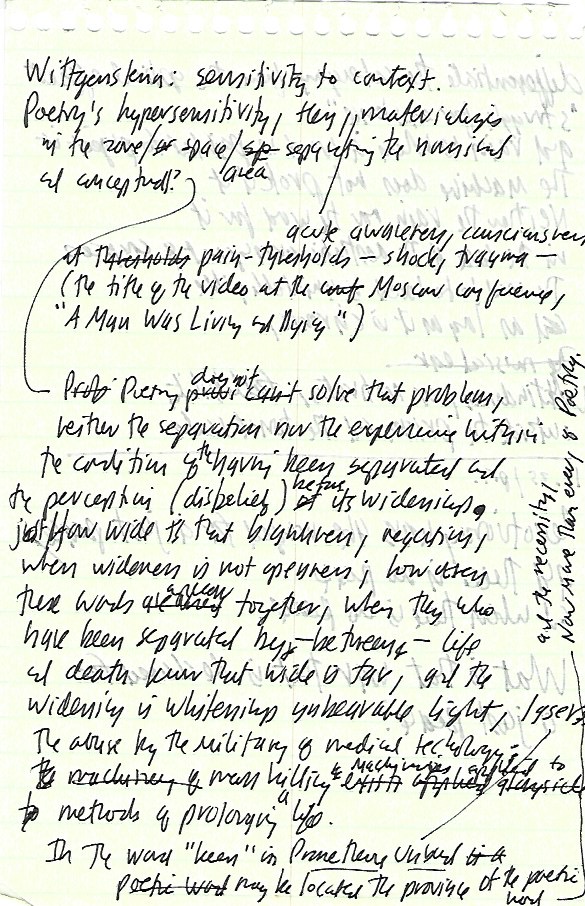 Wittgenstein: sensitivity to context.
Poetry's hypersensitivity, then, materializes
in the zone / or space / separating the musical
area
and conceptual?
acute awareness, consciousness
at thresholds pain-thresholds — shock, trauma —
(the title of the video at the conf Moscow conference,
"A Man Was Living and Dying".)
Prob Poetry can't solve that problem,
does not
neither the separation nor the experience within
the condition of the having been separated and
the perception (disbelief) of its widening,
before
just How wide is that blankness, negation,
when wideness is not openness, how
these words together, when they who
have been separated by — between — life
and death know that wide is far, and the
widening is whitening unbearable light, lasers
The abuse by the military of medical technology —
machineries applied to
machinery of mass killing
to methods of prolonging a life.
In the word "keen" in Prometheus Unbound is a
poetic word may be located the province of the poetic
word
and the necessity,
Now more than ever, of Poetry.